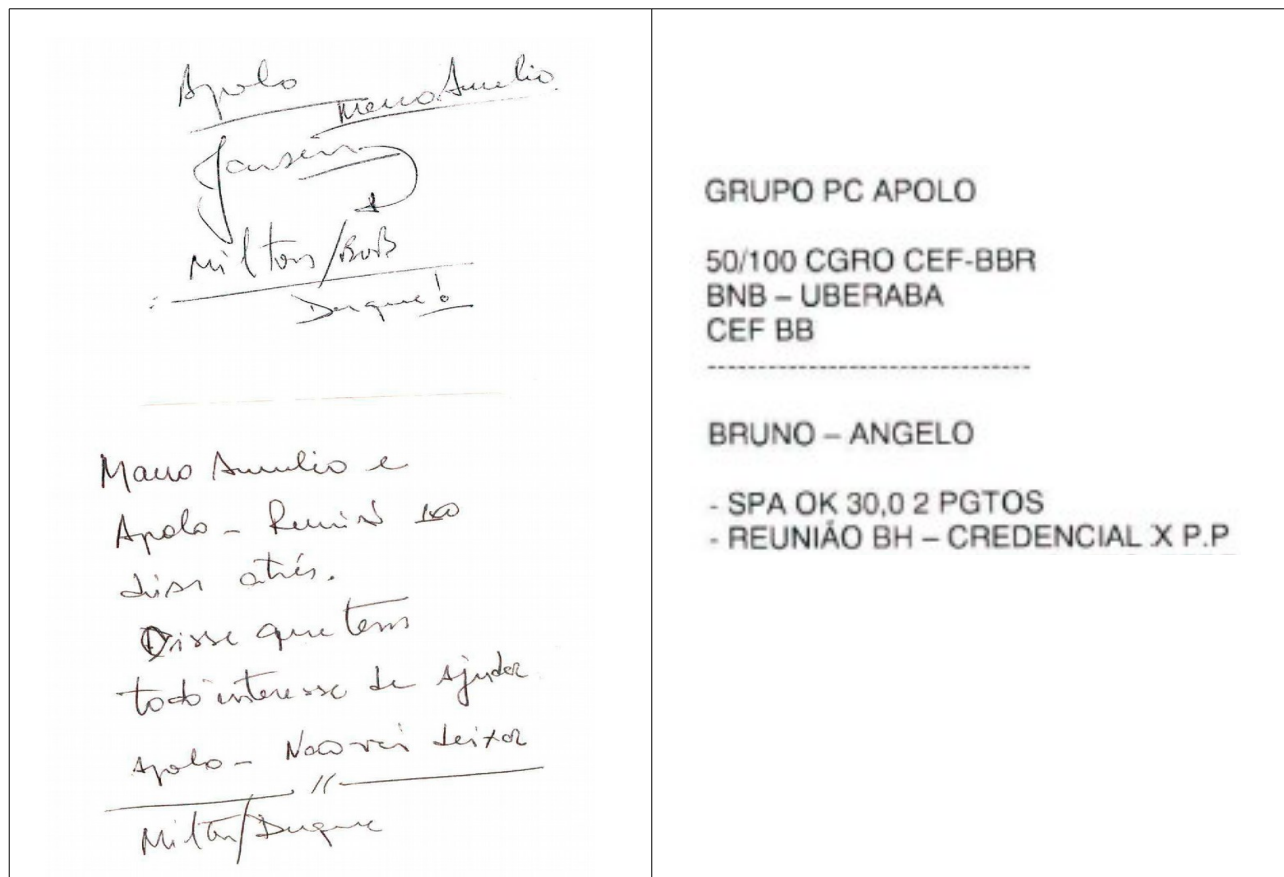 Apolo
Marco Aurelio
Janseiro
Milton/BVB
Duque!
Marco Aurelio e
Apolo - Reunião 180
dias atrás.
Disse que tem
todo interesse de ajudar
Apolo - Não vai deixar
Milton/Duque
GRUPO PC APOLO
50/100 CGRO CEF-BBR
BNB – UBERABA
CEF BB
--------------------------------
BRUNO – ANGELO
- SPA OK 30,0 2 PGTOS
- REUNIÃO BH – CREDENCIAL X P.P